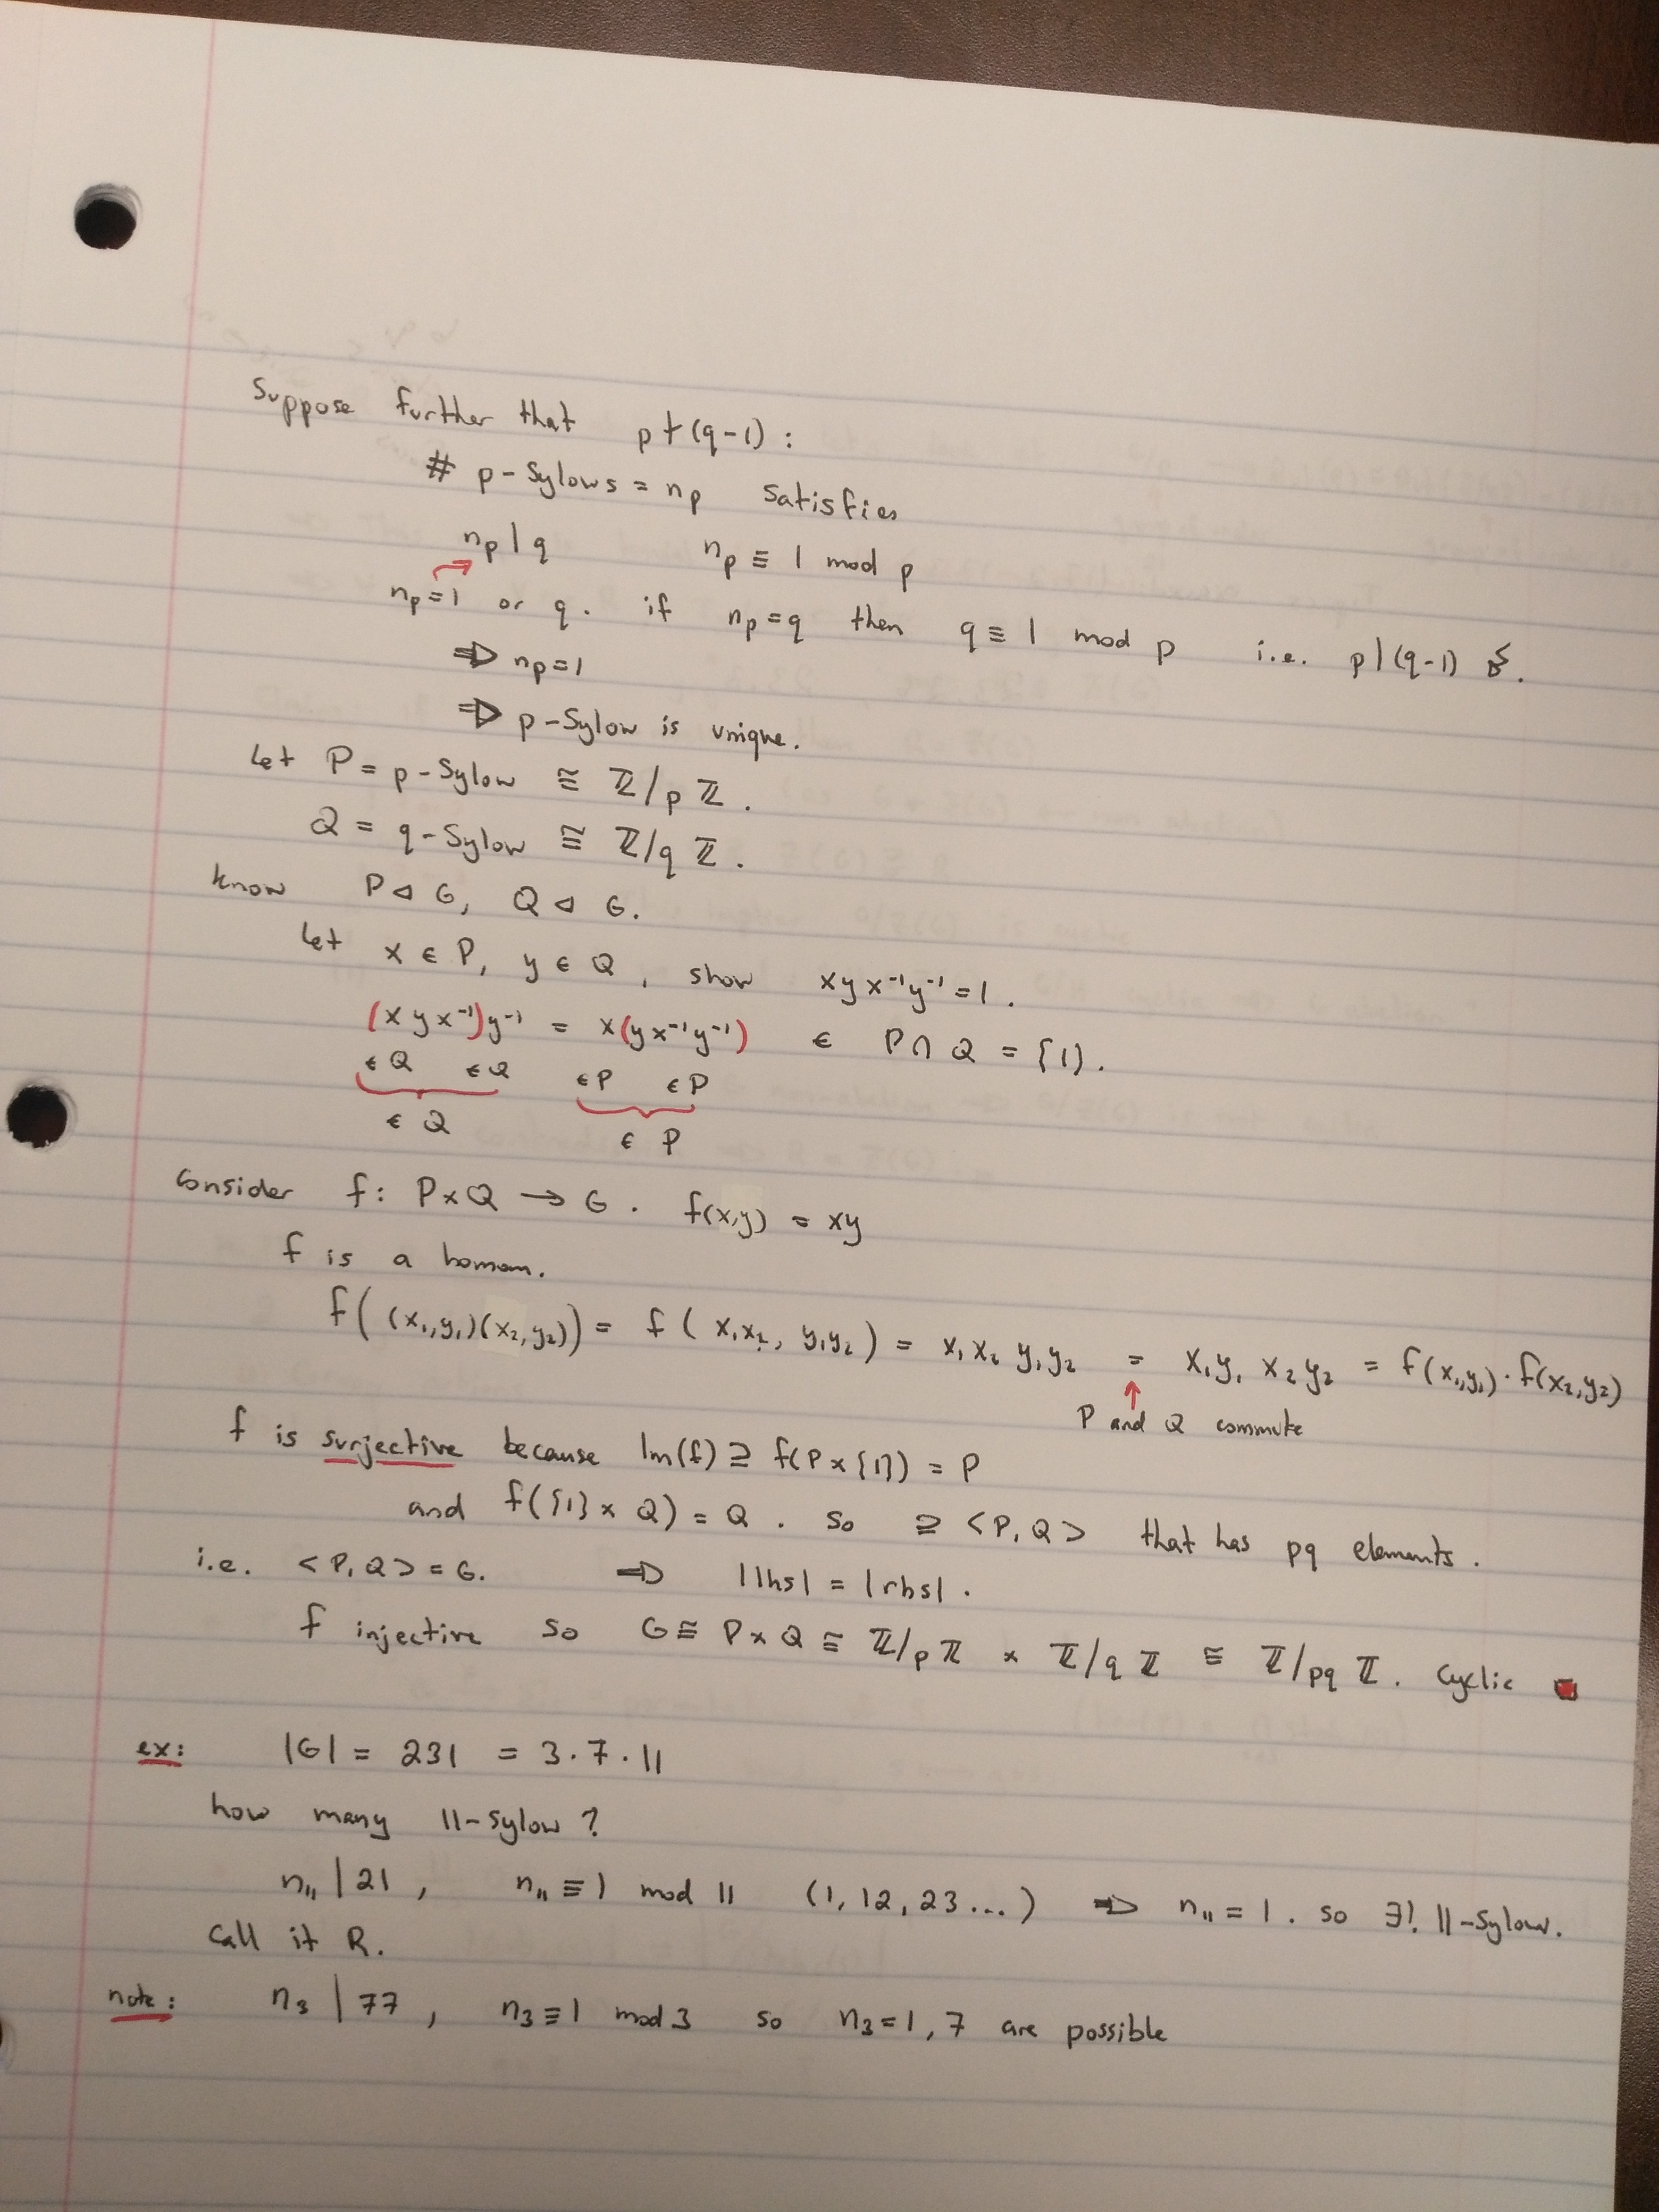 Suppose further that p∤(q-1):
# p-Sylows = nₚ satisfies
nₚ | q nₚ ≡ 1 mod p
nₚ=1 or q. if nₚ=q then q≡1 mod p i.e. p|(q-1) ↯.
⇒ nₚ=1
⇒ p-Sylow is unique.
Let P = p-Sylow ≅ ℤ/pℤ.
Q = q-Sylow ≅ ℤ/qℤ.
know P◁G, Q◁G.
Let x ∈ P, y ∈ Q, show xyx⁻¹y⁻¹=1.
(xyx⁻¹)y⁻¹ = x(yx⁻¹y⁻¹) ∈ P∩Q = {1}.
∈Q ∈Q ∈P ∈P
∈ Q ∈ P
Consider f: P×Q → G. f(x,y) = xy
f is a homom.
f((x₁,y₁)(x₂,y₂)) = f(x₁x₂, y₁y₂) = x₁x₂y₁y₂ = x₁y₁x₂y₂ = f(x₁,y₁)·f(x₂,y₂)
P and Q commute
f is surjective because Im(f) ⊇ f(P×{1}) = P
and f({1}×Q) = Q. so ⊇ <P,Q> that has pq elements.
i.e. <P,Q> = G. ⇒ |lhs| = |rhs|.
f injective so G ≅ P×Q ≅ ℤ/pℤ × ℤ/qℤ ≅ ℤ/pqℤ. Cyclic ■
ex: |G| = 231 = 3·7·11
how many 11-Sylow?
n₁₁ | 21, n₁₁ ≡ 1 mod 11 (1, 12, 23...) ⇒ n₁₁ = 1. so ∃! 11-Sylow.
Call it R.
note: n₃ | 77, n₃≡1 mod 3 so n₃=1, 7 are possible